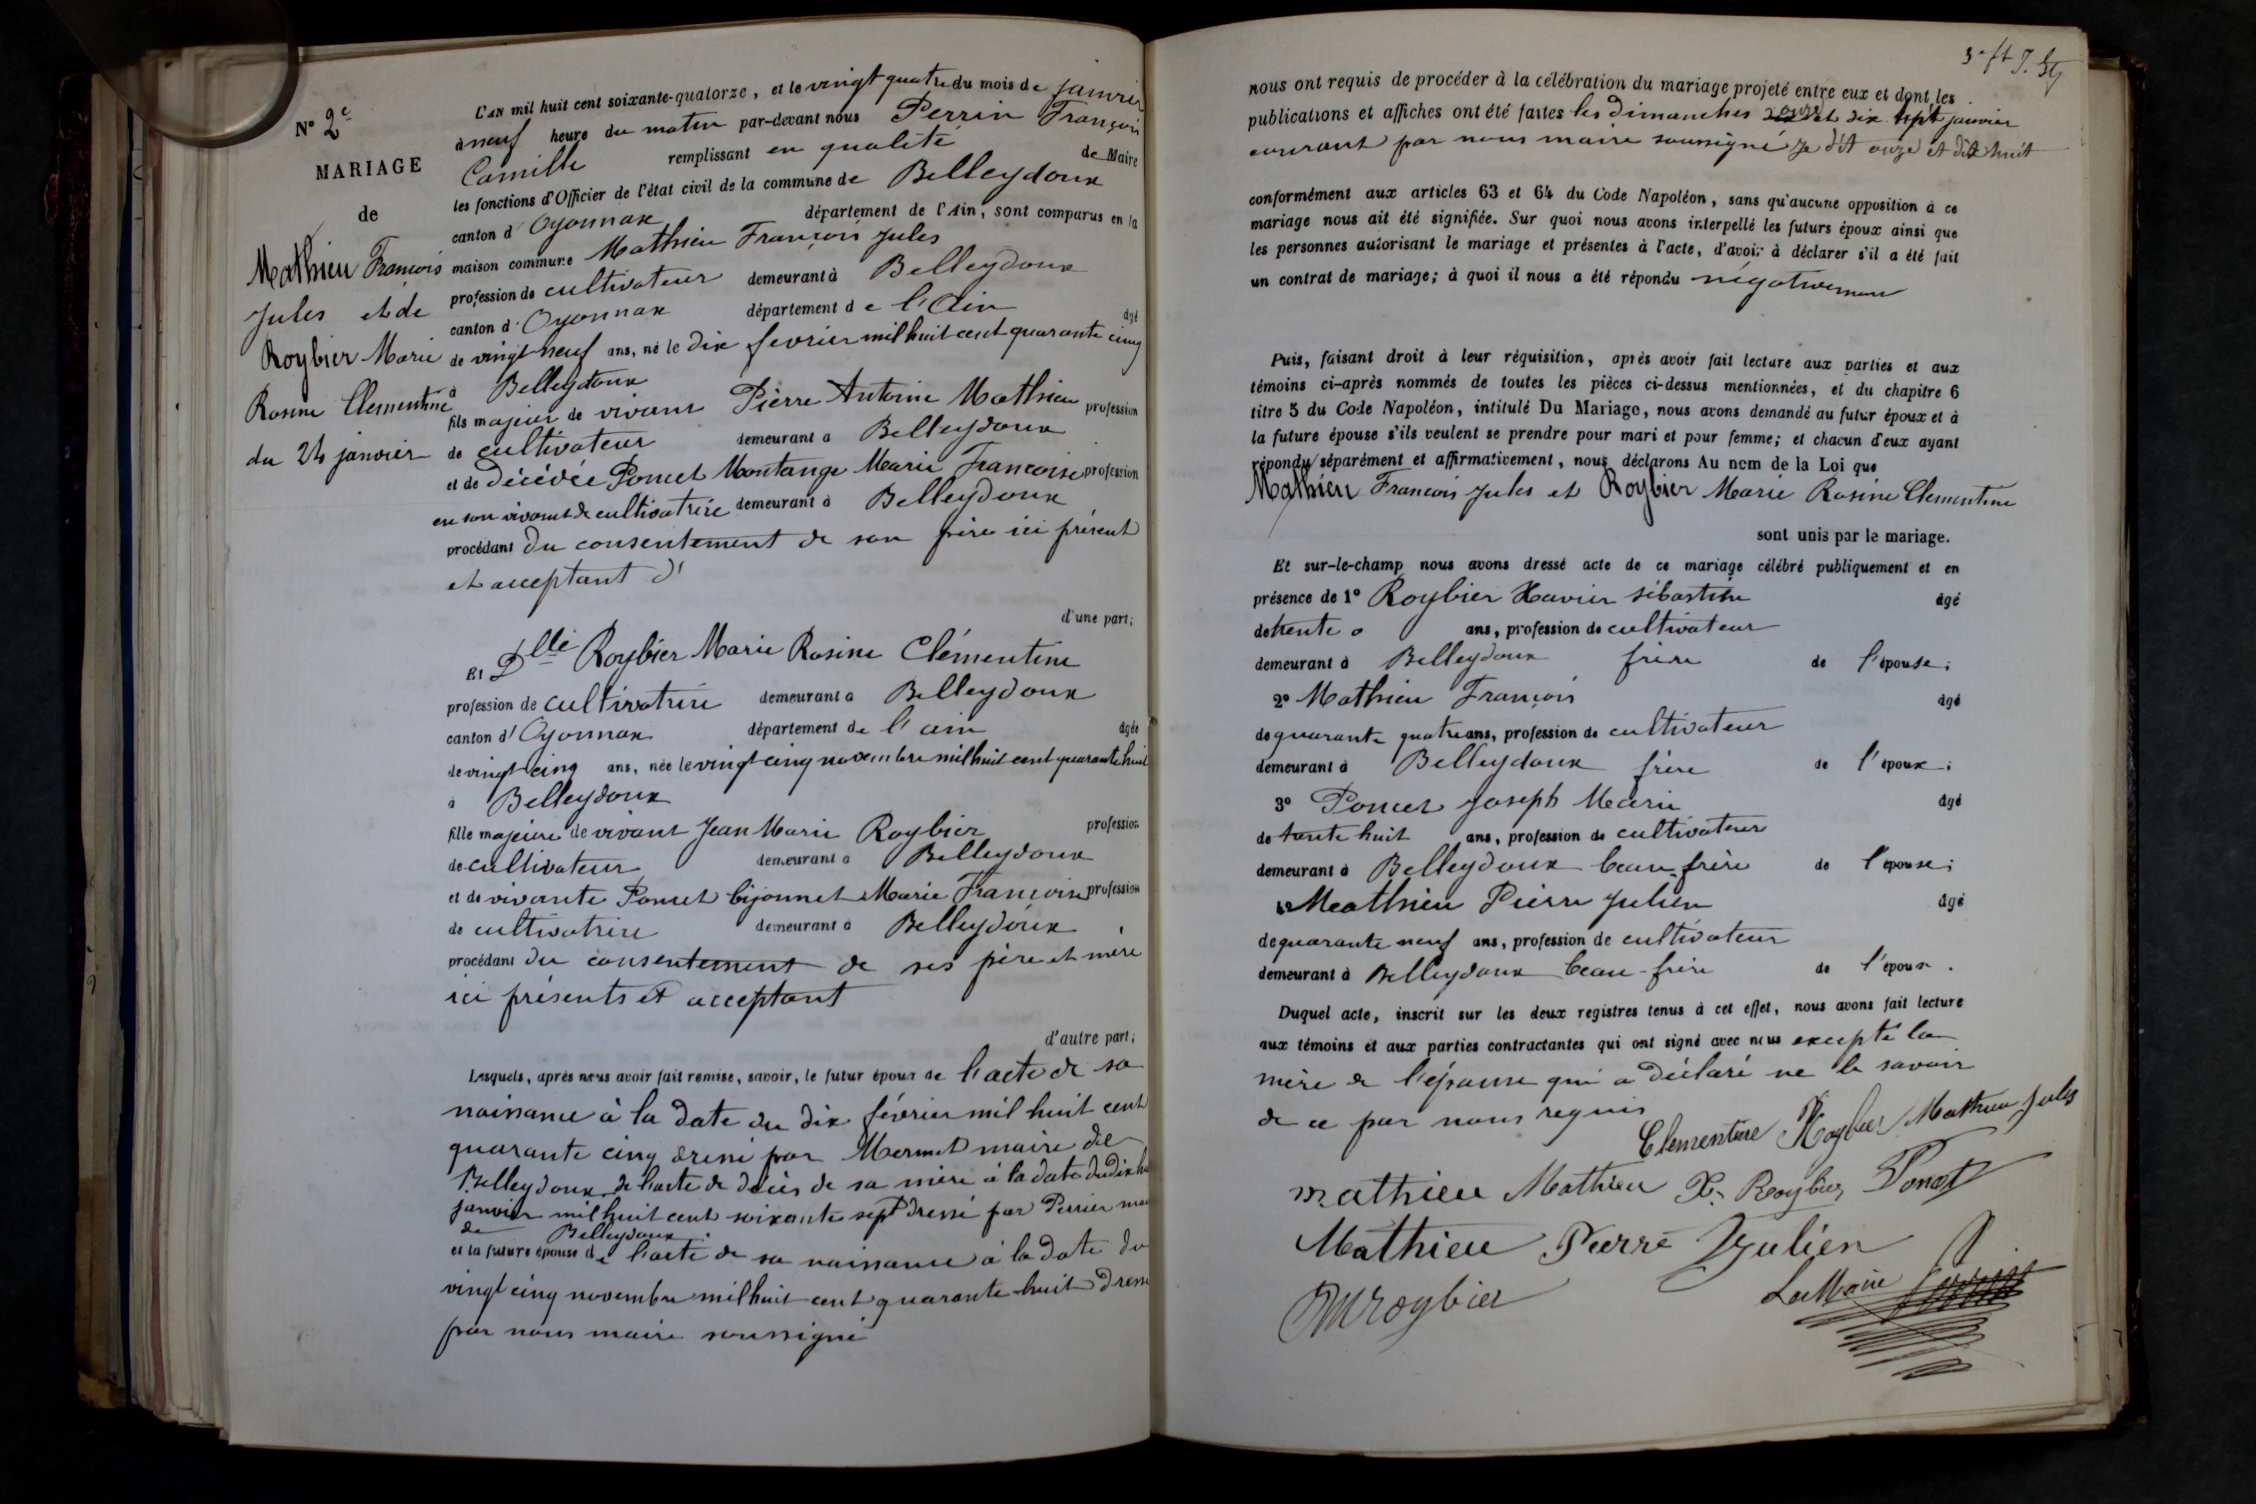 N° 2e
MARIAGE
de
Mathieu François
Jules et de
Roybier Marie
Rosine Clementine
du 24 janvier
L'AN mil huit cent soixante-quatorze, et le vingt quatre du mois de janvier
à neuf heure du matin par-devant nous Perrin François
Camille remplissant en qualité de Maire
les fonctions d'Officier de l'état civil de la commune de Belleydoux
canton d'Oyonnax département de l'Ain, sont comparus en la
maison commune Mathieu François Jules
profession de cultivateur demeurant à Belleydoux
canton d'Oyonnax département de l'Ain âgé
de vingt neuf ans, né le dix fevrier mil huit cent quarante cinq
à Belleydoux
fils majeur de vivant Pierre Antoine Mathieu profession
de cultivateur demeurant à Belleydoux
et de décédée Poncet Montange Marie Francoise profession
en son vivant de cultivatrice demeurant à Belleydoux
procédant du consentement de son frère ici présent
et acceptant d'
d'une part;
Et Dlle Roybier Marie Rosine Clémentine
profession de cultivatrice demeurant à Belleydoux
canton d'Oyonnax département de l'ain âgée
de vingt cinq ans, née le vingt cinq novembre mil huit cent quarante huit
à Belleydoux
fille majeure de vivant Jean Marie Roybier profession
de cultivateur demeurant à Belleydoux
et de vivante Poncet bijonnet Marie Françoise profession
de cultivatrice demeurant à Belleydoux
procédant du consentement de ses père et mère
ici présents et acceptant
d'autre part;
Lesquels, après nous avoir fait remise, savoir, le futur époux de l'acte de sa
naissance à la date du dix février mil huit cent
quarante cinq dressé par Mermet maire de
Belleydoux de l'acte de décès de sa mère à la date du dix
janvier mil huit cent soixante sept dressé par Perrier
de Belleydoux
et la future épouse de l'acte de sa naissance à la date du
vingt cinq novembre mil huit cent quarante huit dressé
par nous maire soussigné
nous ont requis de procéder à la célébration du mariage projeté entre eux et dont les
publications et affiches ont été faites les dimanches et dix sept janvier
courant par nous maire soussigné je dit onze et dix huit
conformément aux articles 63 et 64 du Code Napoléon, sans qu'aucune opposition à ce
mariage nous ait été signifiée. Sur quoi nous avons interpellé les futurs époux ainsi que
les personnes autorisant le mariage et présentes à l'acte, d'avoir à déclarer s'il a été fait
un contrat de mariage; à quoi il nous a été répondu négativement
Puis, faisant droit à leur réquisition, après avoir fait lecture aux parties et aux
témoins ci-après nommés de toutes les pièces ci-dessus mentionnées, et du chapitre 6
titre 5 du Code Napoléon, intitulé Du Mariage, nous avons demandé au futur époux et à
la future épouse s'ils veulent se prendre pour mari et pour femme; et chacun d'eux ayant
répondu séparément et affirmativement, nous déclarons Au nom de la Loi que
Mathieu Francois Jules et Roybier Marie Rosine Clementine
sont unis par le mariage.
Et sur-le-champ nous avons dressé acte de ce mariage célébré publiquement et en
présence de 1° Roybier Xavier sébastien âgé
de trente ans, profession de cultivateur
demeurant à Belleydoux frère de l'épouse;
2° Mathieu François âgé
de quarante quatre ans, profession de cultivateur
demeurant à Belleydoux frère de l'époux;
3° Poncet Joseph Marie âgé
de trente huit ans, profession de cultivateur
demeurant à Belleydoux beau-frère de l'épouse;
4° Mathieu Pierre Julien âgé
de quarante neuf ans, profession de cultivateur
demeurant à Belleydoux beau-frère de l'époux.
Duquel acte, inscrit sur les deux registres tenus à cet effet, nous avons fait lecture
aux témoins et aux parties contractantes qui ont signé avec nous excepté la
mère de l'épouse qui a déclaré ne le savoir
de ce par nous requis
Clementine Roybier Mathieu Jules
mathieu Mathieu X. Roybier Poncet
Mathieu Pierre Julien
JM roybier Le Maire Perrin